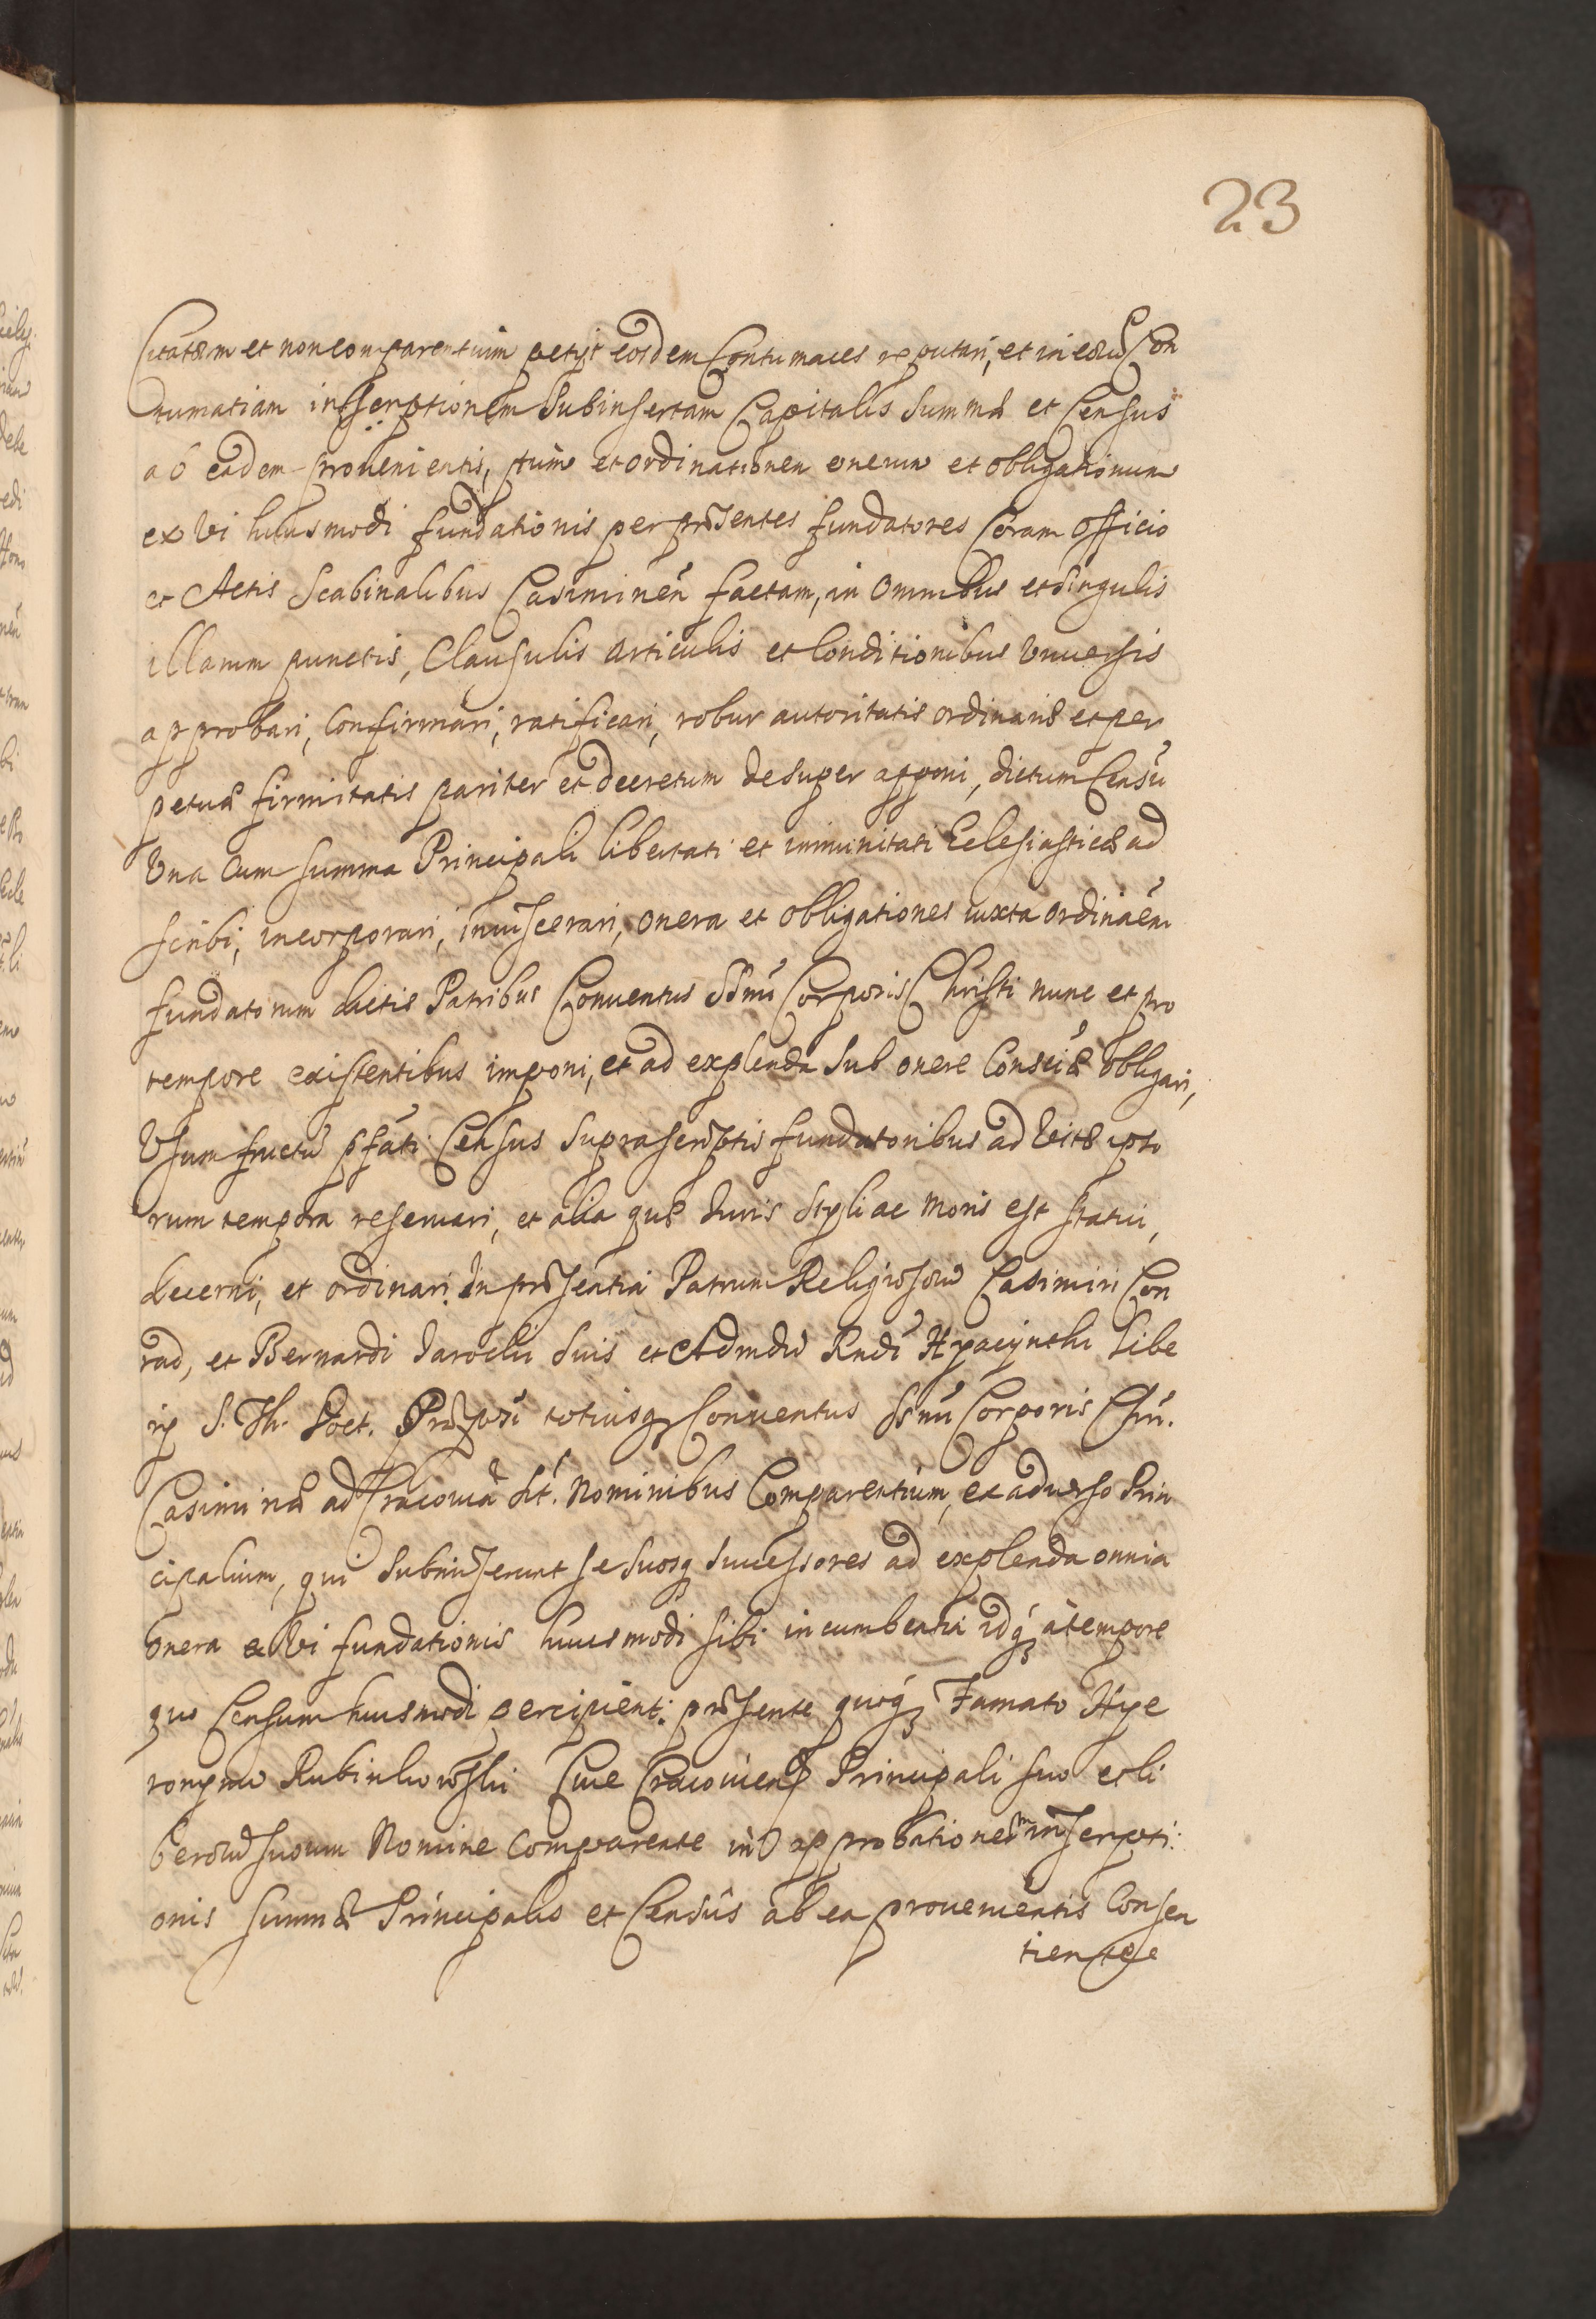 23
Citatorum et non comparentium petijt eosdem Contumaces reputari, et in eorũ Con
tumatiam inscriptionem Subinsertam Capitalis Summæ et Census
ab eadem prouenientis, tum et ordinationem onerum et obligationum
ex vi huiusmodi fundationis per prñsentes fundatores Coram Officio
et Actis Scabinalibus Casimirieñ factam, in Omnibus et Singulis
illarum punctis, Clausulis Articulis et Conditionibus Vniuersis
approbari, Confirmari, ratificari, robur autoritatis ordinariæ et per
petuæ firmitatis pariter et decretum desuper apponi, dictum Censũ
Vna Cum Summa Principali libertati et immunitati Eclesiasticæ ad
scribi, incorporari, inuiscerari, onera et obligationes iuxta ordinaẽm
fundatorum dictis Patribus Conuentus SSmi Corporis Christi nunc et pro
tempore existentibus imponi, et ad explenda Sub onere Consciæ obligari,
Vsum fructũ pfati Census Suprascriptis fundatoribus ad Vitæ ipso
rum tempora reseruari, et alia quæ Iuris Styli ac Moris est statui,
decerni, et ordinari. In prñsentia Patrum Religiosorũ Casimiri Con
rad, et Bernardi Jarocki Suis et Admdũ Rndi Hyacynthi Libe
ry S. Th. Doct. Præpti totiusq Conuentus SSmi Corporis Chri.
Casimiriæ ad Cracouiã Sit. Nominibus Comparentium, ex aduerso Prin
cipalium, qui Submiserunt se Suosq Successores ad explenda omnia
onera ex Vi fundationis huiusmodi sibi incumbentia idq; à tempore
quo Censum huiusmodi percipient: prñsente quoq; Famato Hye
ronymo Rubinkowski Ciue Cracouieñ Principali suo et li
berorũ suorum Nomine Comparente in approbationem inscripti:
onis Summæ Principalis et Censûs ab ea prouenientis Consen
tiente